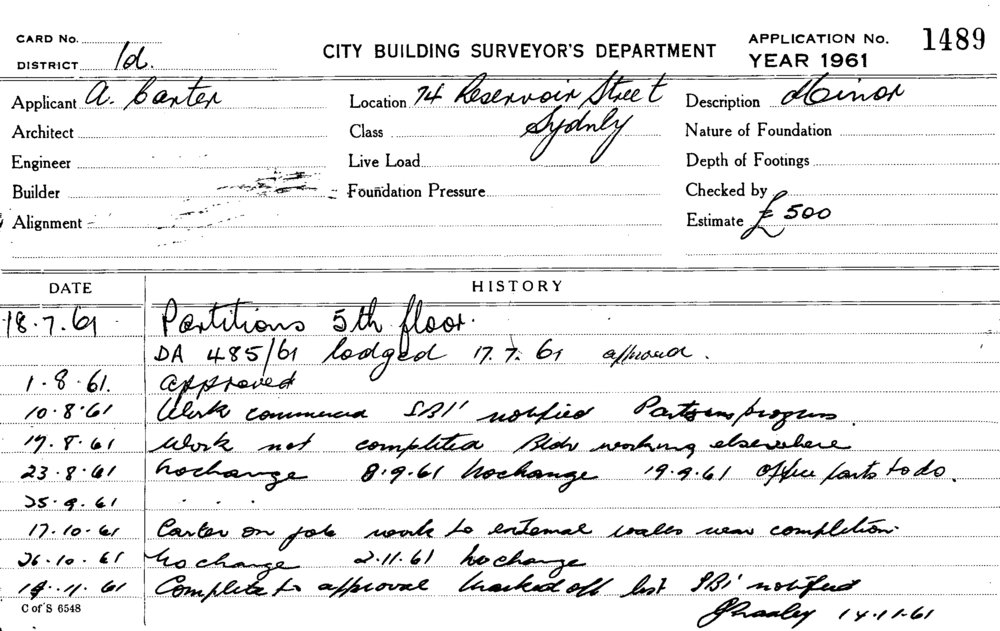 CARD No.
DISTRICT 1d.
CITY BUILDING SURVEYOR'S DEPARTMENT
APPLICATION No. 1489
YEAR 1961
Applicant A. Carter Location 74 Reservoir Street Description Minor
Sydney
Architect Class Nature of Foundation
Engineer Live Load Depth of Footings
Builder Foundation Pressure Checked by
Alignment Estimate £ 500
DATE HISTORY
18.7.61 Partitions 5th floor.
DA 485/61 lodged 17.7.61 approved.
1.8.61. approved
10.8.61 Work commenced SBI' notified Partsns progress
17.8.61 Work not completed Bldr working elsewhere
23.8.61 No change 8.9.61 No change 19.9.61 Office parts to do.
25.9.61 . . .
17.10.61 Carter on job work to external walls near completion.
26.10.61 No change 2.11.61 No change
14.11.61 Complete to approval Marked off list SBI' notified
14.11.61
C of S 6548